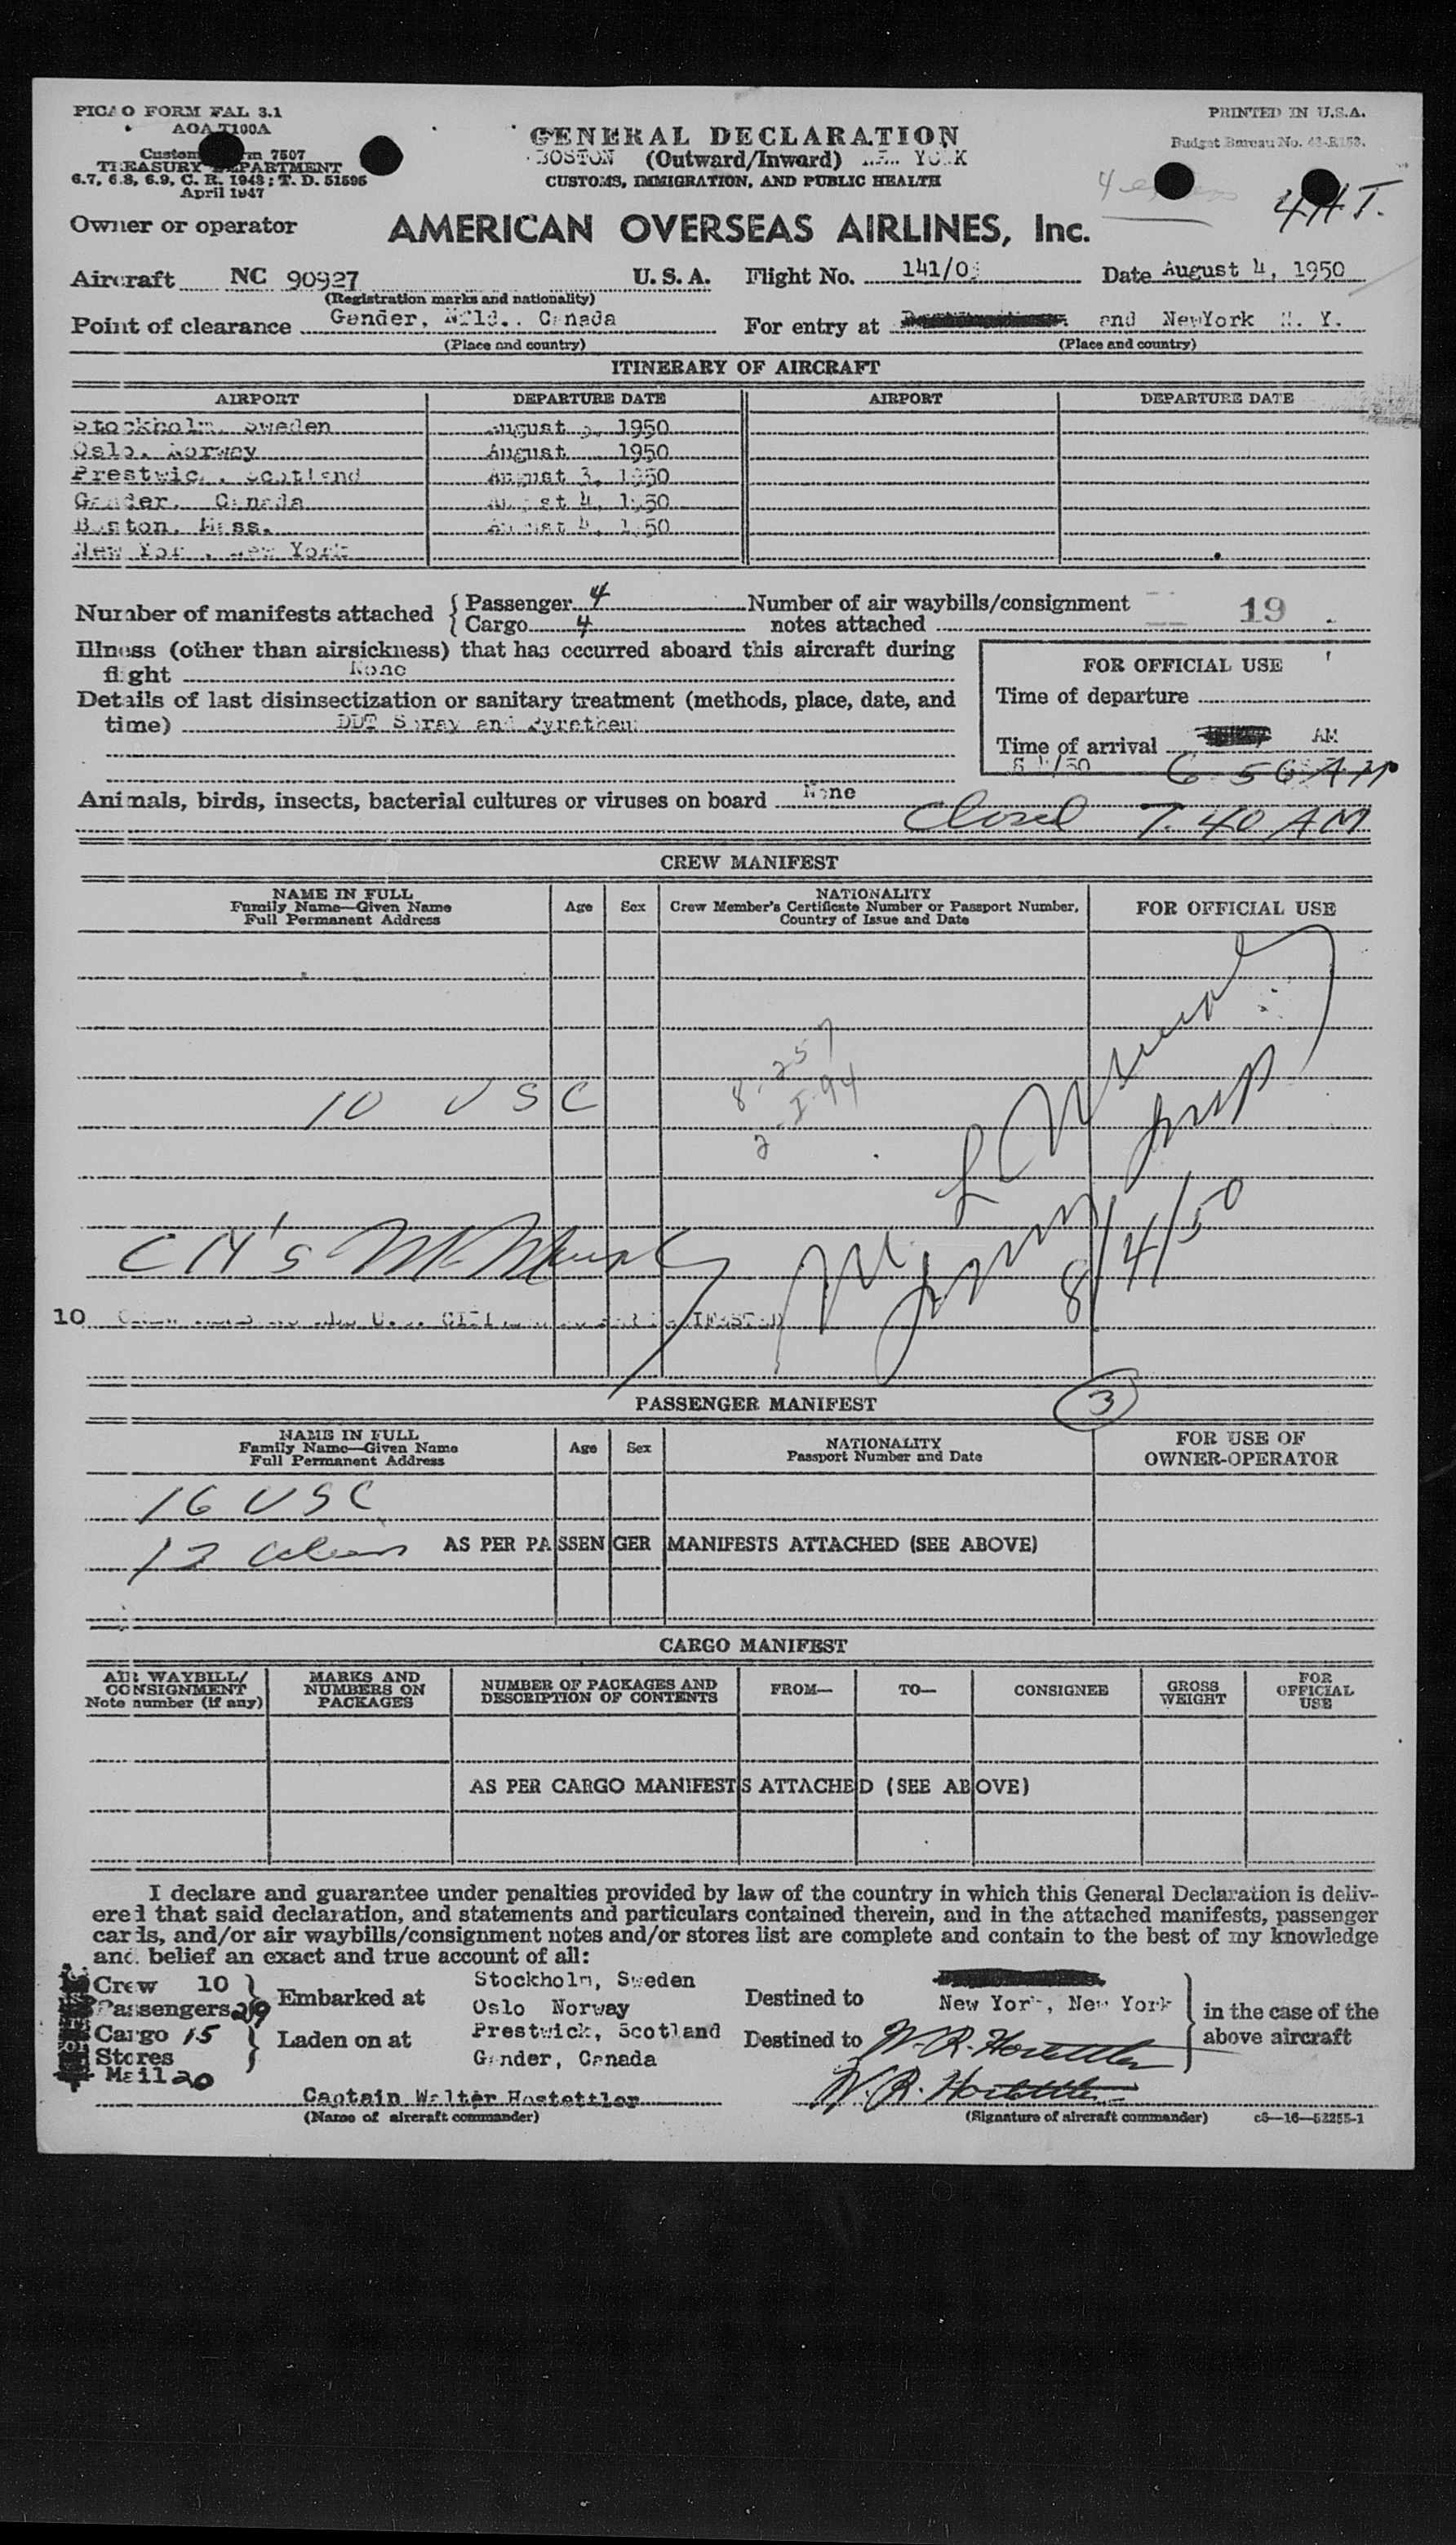 PICAO FORM FAL 3.1
AOA T100A
Customs Form 7507
TREASURY DEPARTMENT
6.7, 6.8, 6.9, C. R. 1943; T. D. 51595
April 1947
PRINTED IN U.S.A.
Budget Bureau No.
GENERAL DECLARATION
BOSTON (Outward/Inward) NEW YORK
CUSTOMS, IMMIGRATION, AND PUBLIC HEALTH
4
Owner or operator AMERICAN OVERSEAS AIRLINES, Inc.
Aircraft NC 90927 U. S. A. Flight No. 141/03 Date August 4, 1950
(Registration marks and nationality)
Point of clearance Gander, Nfld., Canada For entry at and NewYork N. Y.
(Place and country) (Place and country)
ITINERARY OF AIRCRAFT
AIRPORT DEPARTURE DATE AIRPORT DEPARTURE DATE
Stockholm, Sweden August 1950
Oslo, Norway August 1950
Prestwick, Scotland August 3, 1950
Gander, Canada August 4, 1950
Boston, Mass. August 4, 1950
New York, New York
Number of manifests attached { Passenger 4
Cargo 4
Number of air waybills/consignment notes attached 19
Illness (other than airsickness) that has occurred aboard this aircraft during
flight None
Details of last disinsectization or sanitary treatment (methods, place, date, and
time) DDT Spray and Pyratheum
FOR OFFICIAL USE
Time of departure
Time of arrival AM
8/4/50 6 56 AM
Animals, birds, insects, bacterial cultures or viruses on board None
Closed 7.40 AM
CREW MANIFEST
NAME IN FULL
Family Name—Given Name
Full Permanent Address
Age Sex
NATIONALITY
Crew Member's Certificate Number or Passport Number,
Country of Issue and Date
FOR OFFICIAL USE
8-257
10 USC
2-I-94
Insp
8/4/50
CM's
10 CREW MEMBERS U.S. CITIZENS MANIFESTED
3
PASSENGER MANIFEST
NAME IN FULL
Family Name—Given Name
Full Permanent Address
Age Sex
NATIONALITY
Passport Number and Date
FOR USE OF
OWNER-OPERATOR
16 USC
13 aliens AS PER PASSENGER MANIFESTS ATTACHED (SEE ABOVE)
CARGO MANIFEST
AIR WAYBILL/
CONSIGNMENT
Note number (if any)
MARKS AND
NUMBERS ON
PACKAGES
NUMBER OF PACKAGES AND
DESCRIPTION OF CONTENTS
FROM— TO— CONSIGNEE
GROSS
WEIGHT
FOR
OFFICIAL
USE
AS PER CARGO MANIFESTS ATTACHED (SEE ABOVE)
I declare and guarantee under penalties provided by law of the country in which this General Declaration is deliv-
ered that said declaration, and statements and particulars contained therein, and in the attached manifests, passenger
cards, and/or air waybills/consignment notes and/or stores list are complete and contain to the best of my knowledge
and belief an exact and true account of all:
Crew 10
Passengers 29
Cargo 15
Stores
Mail 20
Embarked at
Laden on at
Stockholm, Sweden
Oslo Norway
Prestwick, Scotland
Gander, Canada
Destined to New York, New York
Destined to W. R. Hostettler
in the case of the
above aircraft
Captain Walter Hostettler W. R. Hostettler
(Name of aircraft commander) (Signature of aircraft commander) c5—16—52255-1